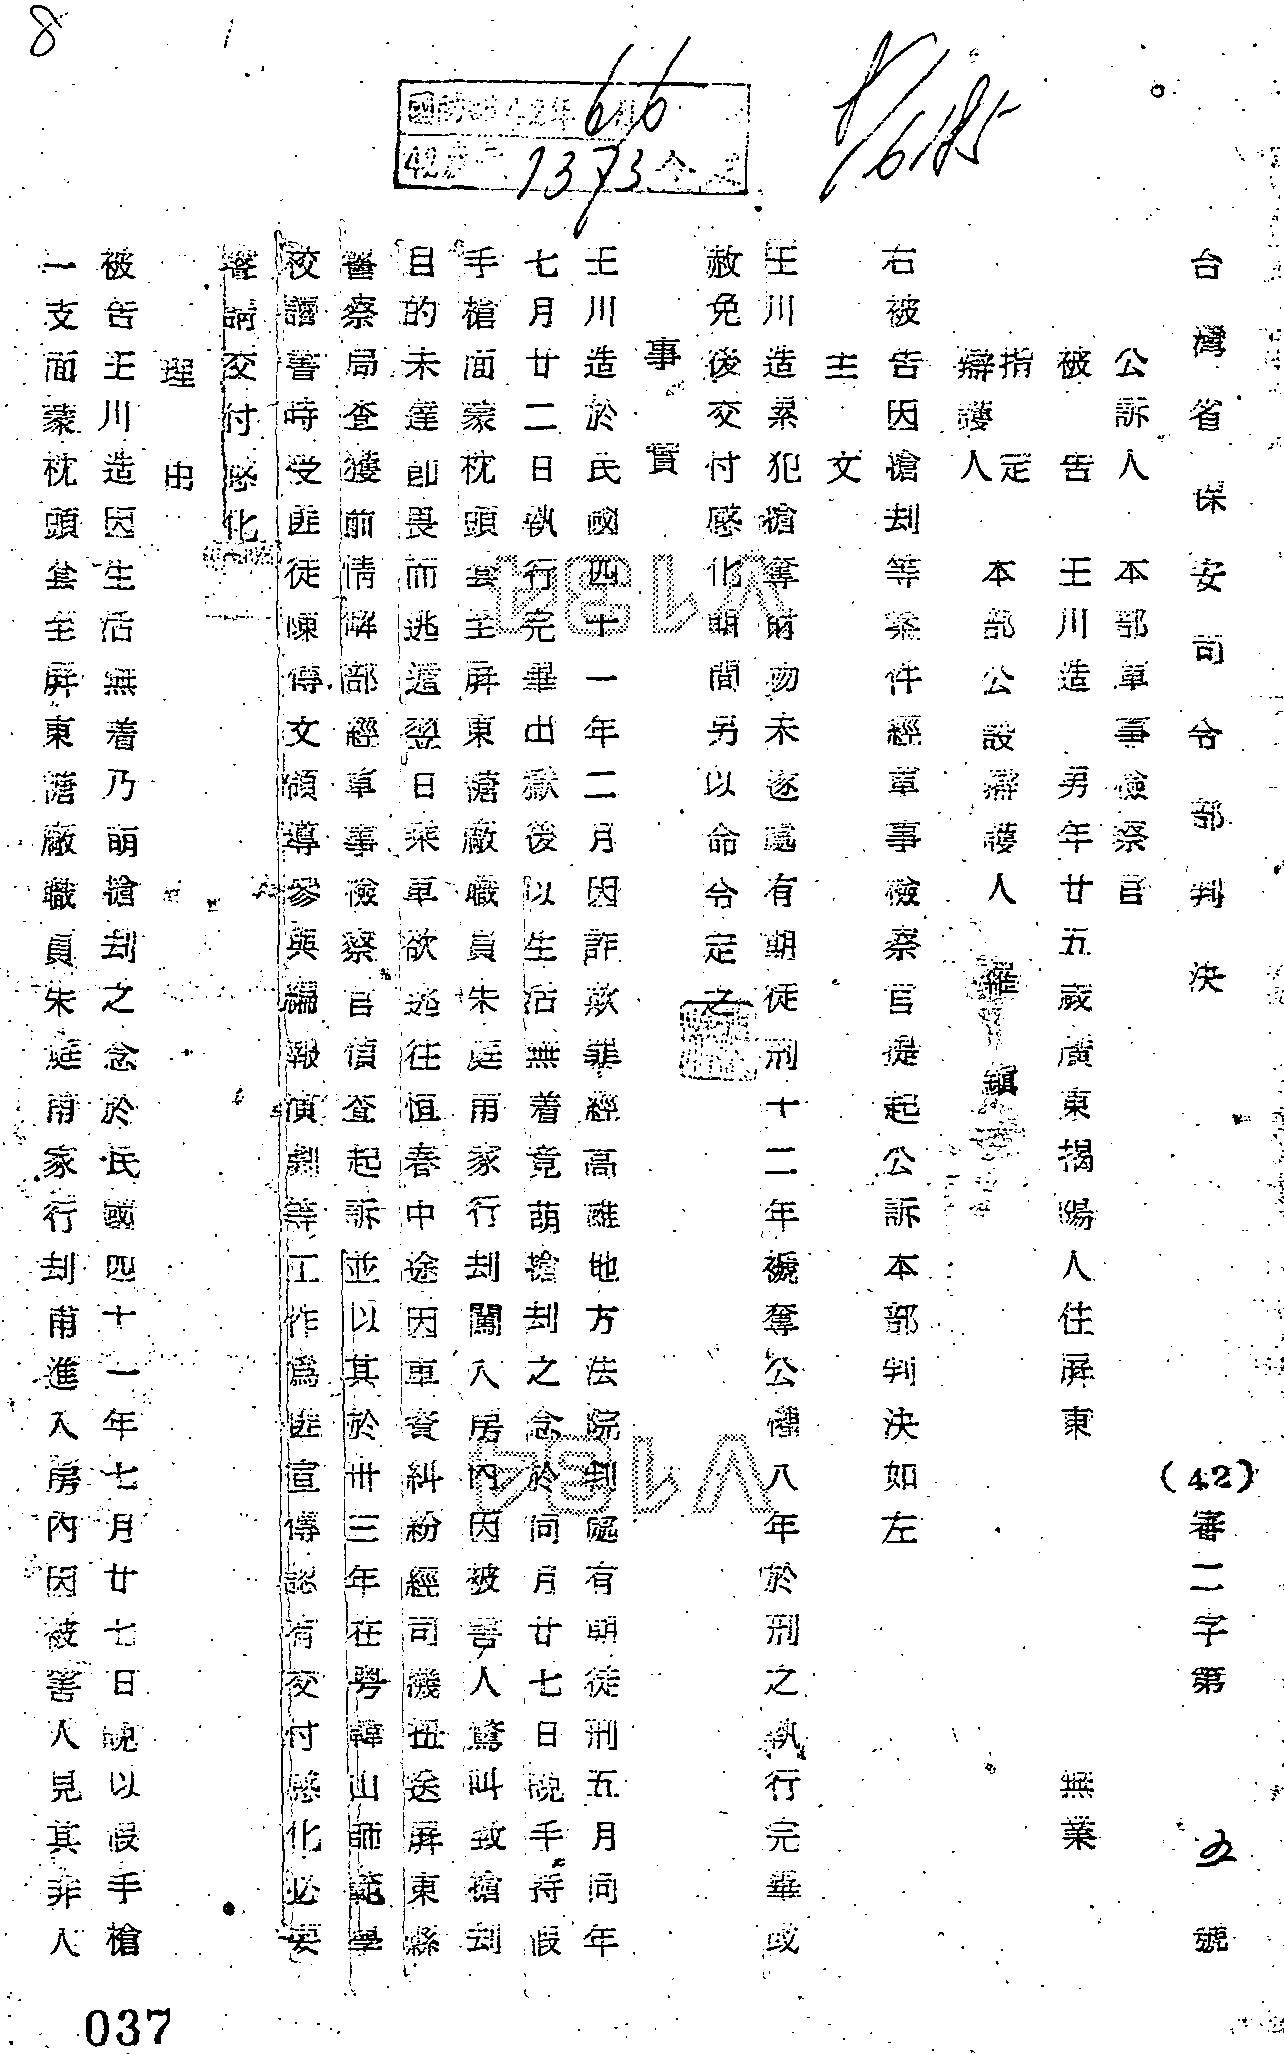 8
42年6月6
1373
台灣省保安司令部判決
(42)審二字第 五 號
公訴人 本部軍事檢察官
被告 王川造 男年廿五歲廣東揭陽人住屏東 無業
指定
辯護人 本部公設辯護人 羅鎮
右被告因搶刦等案件經軍事檢察官提起公訴本部判決如左
主文
王川造累犯搶奪財物未遂處有期徒刑十二年褫奪公權八年於刑之執行完畢或
赦免後交付感化期間另以命令定之
事實
王川造於民國四十一年二月因詐欺罪經高雄地方法院判處有期徒刑五月同年
七月廿二日執行完畢出獄後以生活無着竟萌搶刦之念於同月廿七日晚手持假
手槍面蒙枕頭套至屏東糖廠職員朱庭甫家行刦闖入房內因被害人驚叫致搶刦
目的未達卽畏而逃遁翌日乘車欲逃往恒春中途因車資糾紛經司機扭送屏東縣
警察局查獲前情解部經軍事檢察官偵查起訴並以其於卅三年在粤韓山師範學
校讀書時受匪徒陳傳文領導參與編報演劇等工作爲匪宣傳認有交付感化必要
聲請交付感化
理由
被告王川造因生活無着乃萌搶刦之念於民國四十一年七月廿七日晚以假手槍
一支面蒙枕頭套至屏東糖廠職員朱庭甫家行刦甫進入房內因被害人見其非人
V134
V134
037